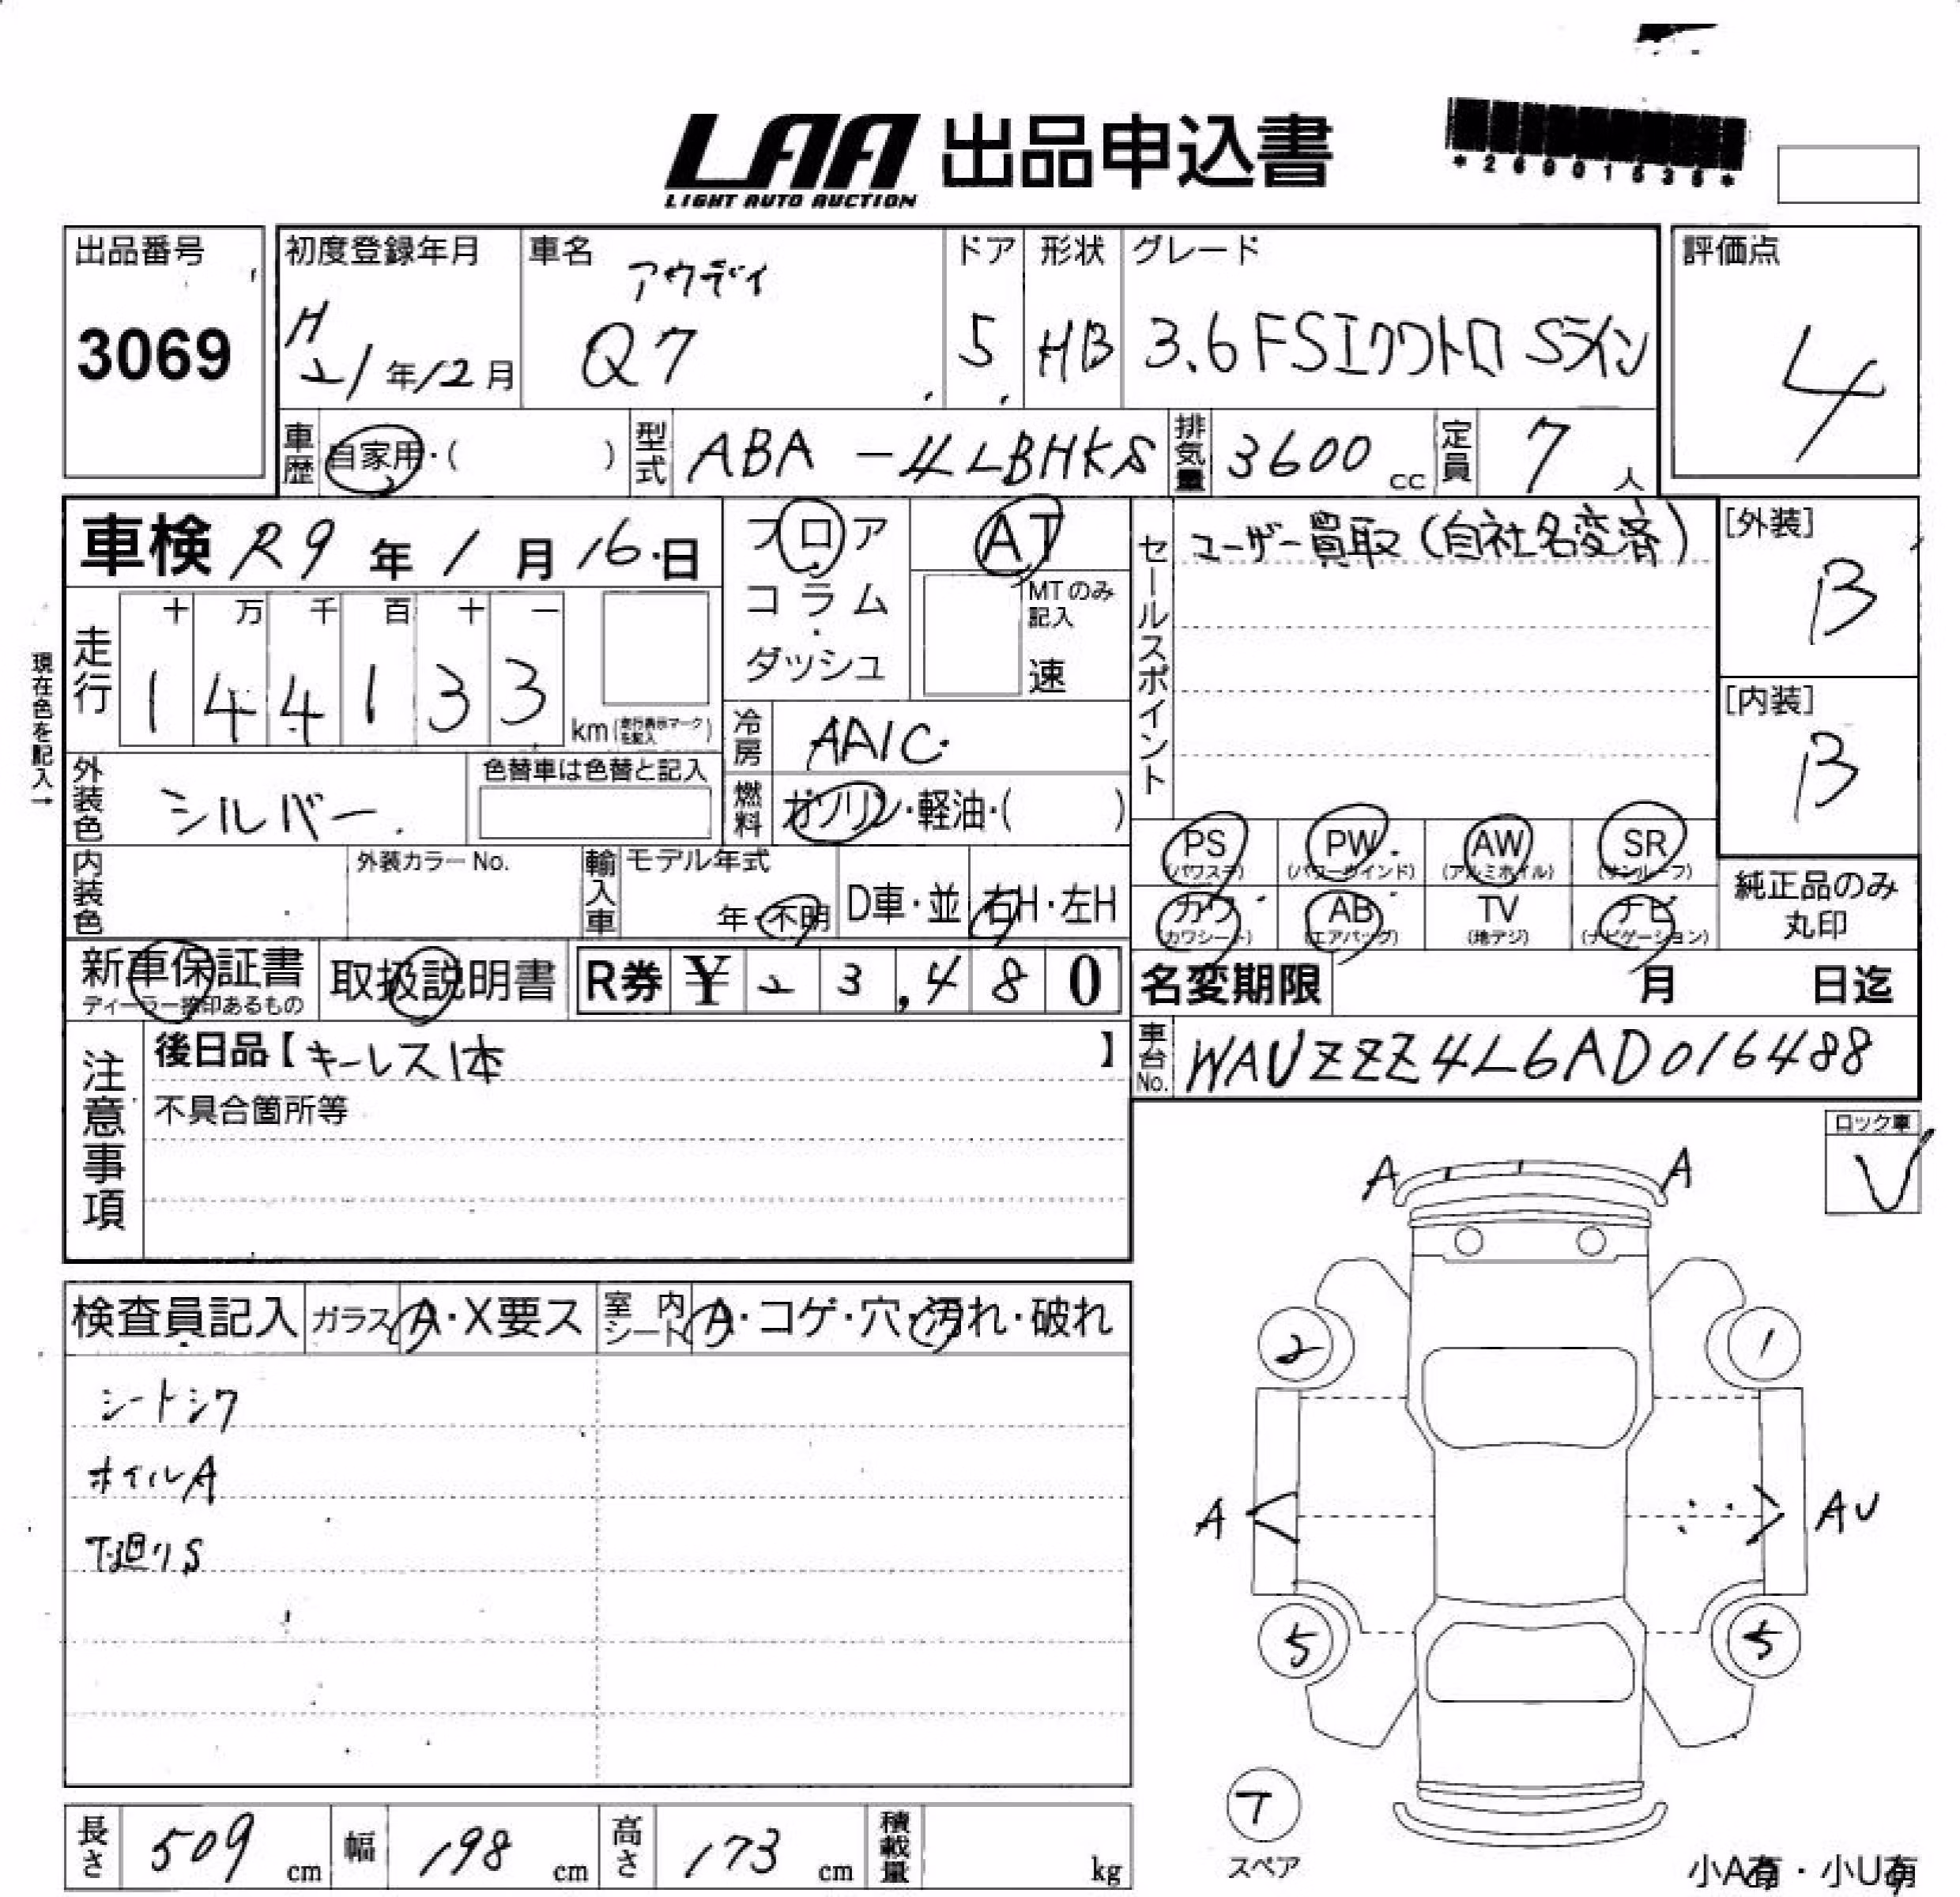 LAA 出品申込書
LIGHT AUTO AUCTION
*26001535*
出品番号
3069
初度登録年月
H21年12月
車名
アウディ
Q7
ドア
5
形状
HB
グレード
3.6FSIクワトロ Sライン
評価点
4
車歴 自家用・( )
型式 ABA-4LBHKS
排気量 3600 cc
定員 7 人
車検 R9年1月16日
フロア
コラム
ダッシュ
AT
MTのみ記入
速
セールスポイント
ユーザー買取(自社名変済)
[外装]
B
[内装]
B
現在色を記入→
走行
十 万 千 百 十 一
1 4 4 1 3 3
km(走行表示マークを記入)
冷房 AAIC
燃料 ガソリン・軽油・( )
外装色 シルバー
色替車は色替と記入
内装色
外装カラーNo.
輸入車
モデル年式
年・不明
D車・並
右H・左H
PS
(パワステ)
PW
(パワーウインド)
AW
(アルミホイル)
SR
(サンルーフ)
カワ
(カワシート)
AB
(エアバッグ)
TV
(地デジ)
ナビ
(ナビゲーション)
純正品のみ
丸印
新車保証書
ディーラー捺印あるもの
取扱説明書
R券 ¥ 2 3,4 8 0
名変期限 月 日迄
注意事項
後日品【キーレス1本 】
不具合箇所等
車台No. WAUZZZ4L6AD016488
ロック車
V
検査員記入
ガラス A・X要ス
室内シート A・コゲ・穴・汚れ・破れ
シートシワ
ホイルA
下廻りS
A
A
2
1
A
AU
5
5
T
スペア
長さ 509 cm
幅 198 cm
高さ 173 cm
積載量 kg
小A有・小U有